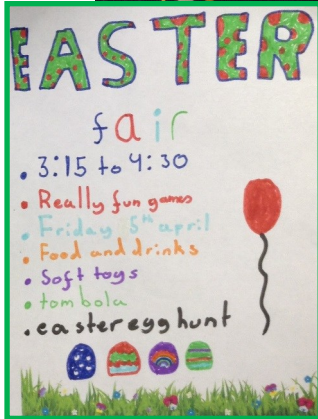 EASTER
fair
• 3:15 to 4:30
• Really fun games
• Friday 5th april
• Food and drinks
• Soft toys
• tombola
• easter egg hunt